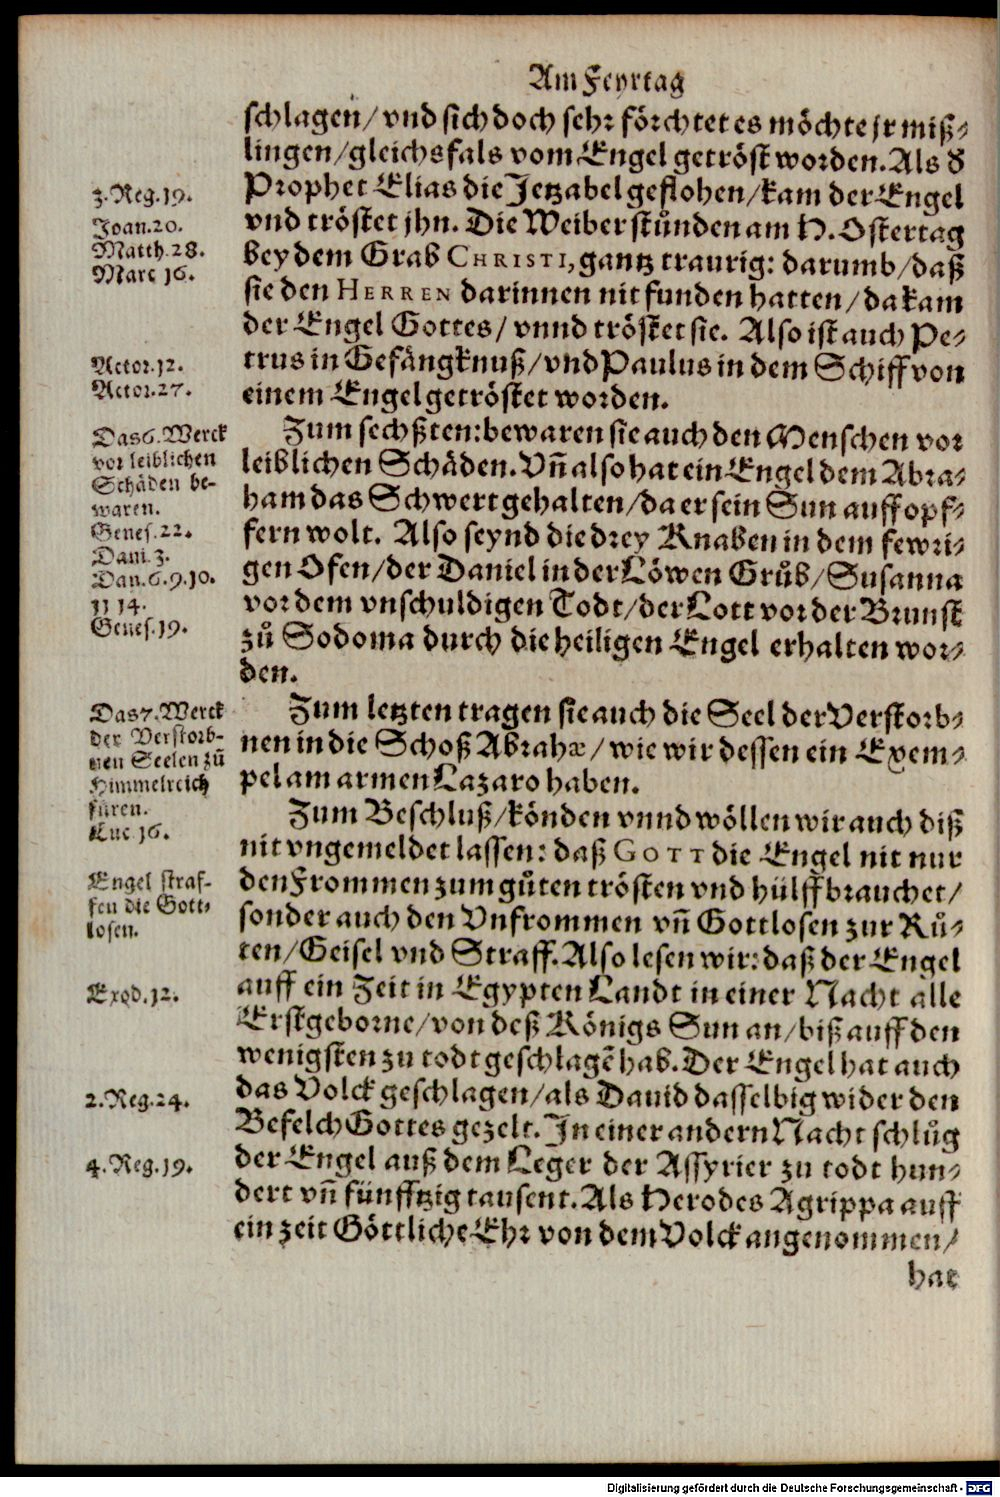 Am Feyrtag
schlagen/ vnd sich doch sehr förchtet es möchte jr miß-
lingen/ gleichsfals vom Engel getröst worden. Als ď
Prophet Elias die Jetzabel geflohen/ kam der Engel
vnd tröstet jhn. Die Weiber stůnden am H. Ostertag
bey dem Grab CHRISTI, gantz traurig: darumb/ daß
sie den HERREN darinnen nit funden hatten/ da kam
der Engel Gottes/ vnnd tröstet sie. Also ist auch Pe-
trus in Gefängknuß/ vnd Paulus in dem Schiff von
einem Engel getröstet worden.
Zum sechßten: bewaren sie auch den Menschen vor
leiblichen Schäden. Vñ also hat ein Engel dem Abra-
ham das Schwert gehalten/ da er sein Sun auffopf-
fern wolt. Also seynd die drey Knaben in dem fewri-
gen Ofen/ der Daniel in der Löwen Grůb/ Susanna
vor dem vnschuldigen Todt/ der Lott vor der Brunst
zů Sodoma durch die heiligen Engel erhalten wor-
den.
Zum letzten tragen sie auch die Seel der Verstorb-
nen in die Schoß Abrahæ/ wie wir dessen ein Exem-
pel am armen Lazaro haben.
Zum Beschluß/ könden vnnd wöllen wir auch diß
nit vngemeldet lassen: daß GOTT die Engel nit nur
den Frommen zum gůten trösten vnd hülff brauchet/
sonder auch den Vnfrommen vñ Gottlosen zur Rů-
ten/ Geisel vnd Straff. Also lesen wir: daß der Engel
auff ein Zeit in Egypten Landt in einer Nacht alle
Erstgeborne/ von deß Königs Sun an/ biß auff den
wenigsten zu todt geschlagẽ hab. Der Engel hat auch
das Volck geschlagen/ als Dauid dasselbig wider den
Befelch Gottes gezelt. In einer andern Nacht schlůg
der Engel auß dem Leger der Assyrier zu todt hun-
dert vñ fünfftzig tausent. Als Herodes Agrippa auff
ein zeit Göttliche Ehr von dem Volck angenommen/
hat
3. Reg. 19.
Joan. 20.
Matth. 28.
Marc 16.
Actor. 12.
Actor. 27.
Das 6. Werck
vor leiblichen
Schäden be-
waren.
Genes. 22.
Dani. 3.
Dan. 6. 9. 10.
11 14.
Genes. 19.
Das 7. Werck
der Verstorb-
nen Seelen zů
Himmelreich
füren.
Luc 16.
Engel straf-
fen die Gott-
losen.
Exod. 12.
2. Reg. 24.
4. Reg. 19.
Digitalisierung gefördert durch die Deutsche Forschungsgemeinschaft - DFG